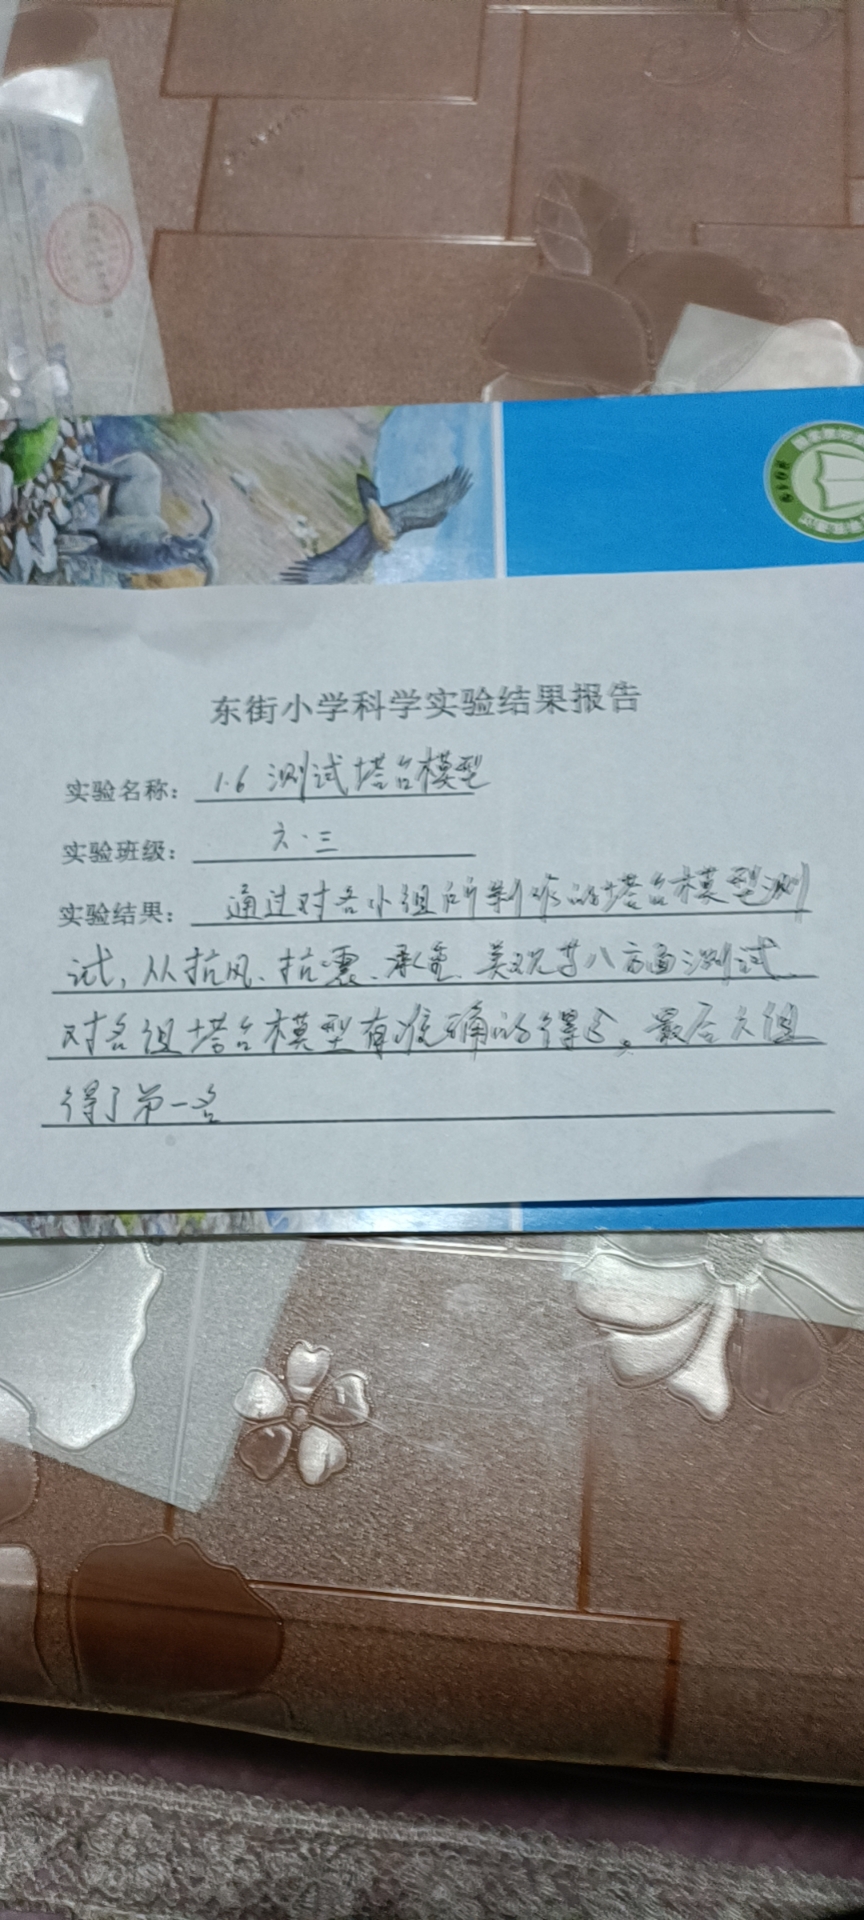 东街小学科学实验结果报告
实验名称： 1.6 测试塔台模型
实验班级： 六·三
实验结果： 通过对各小组所制作的塔台模型测
试，从抗风、抗震、承重、美观等八方面测试、
对各组塔台模型有准确的得分。最后六组
得了第一名